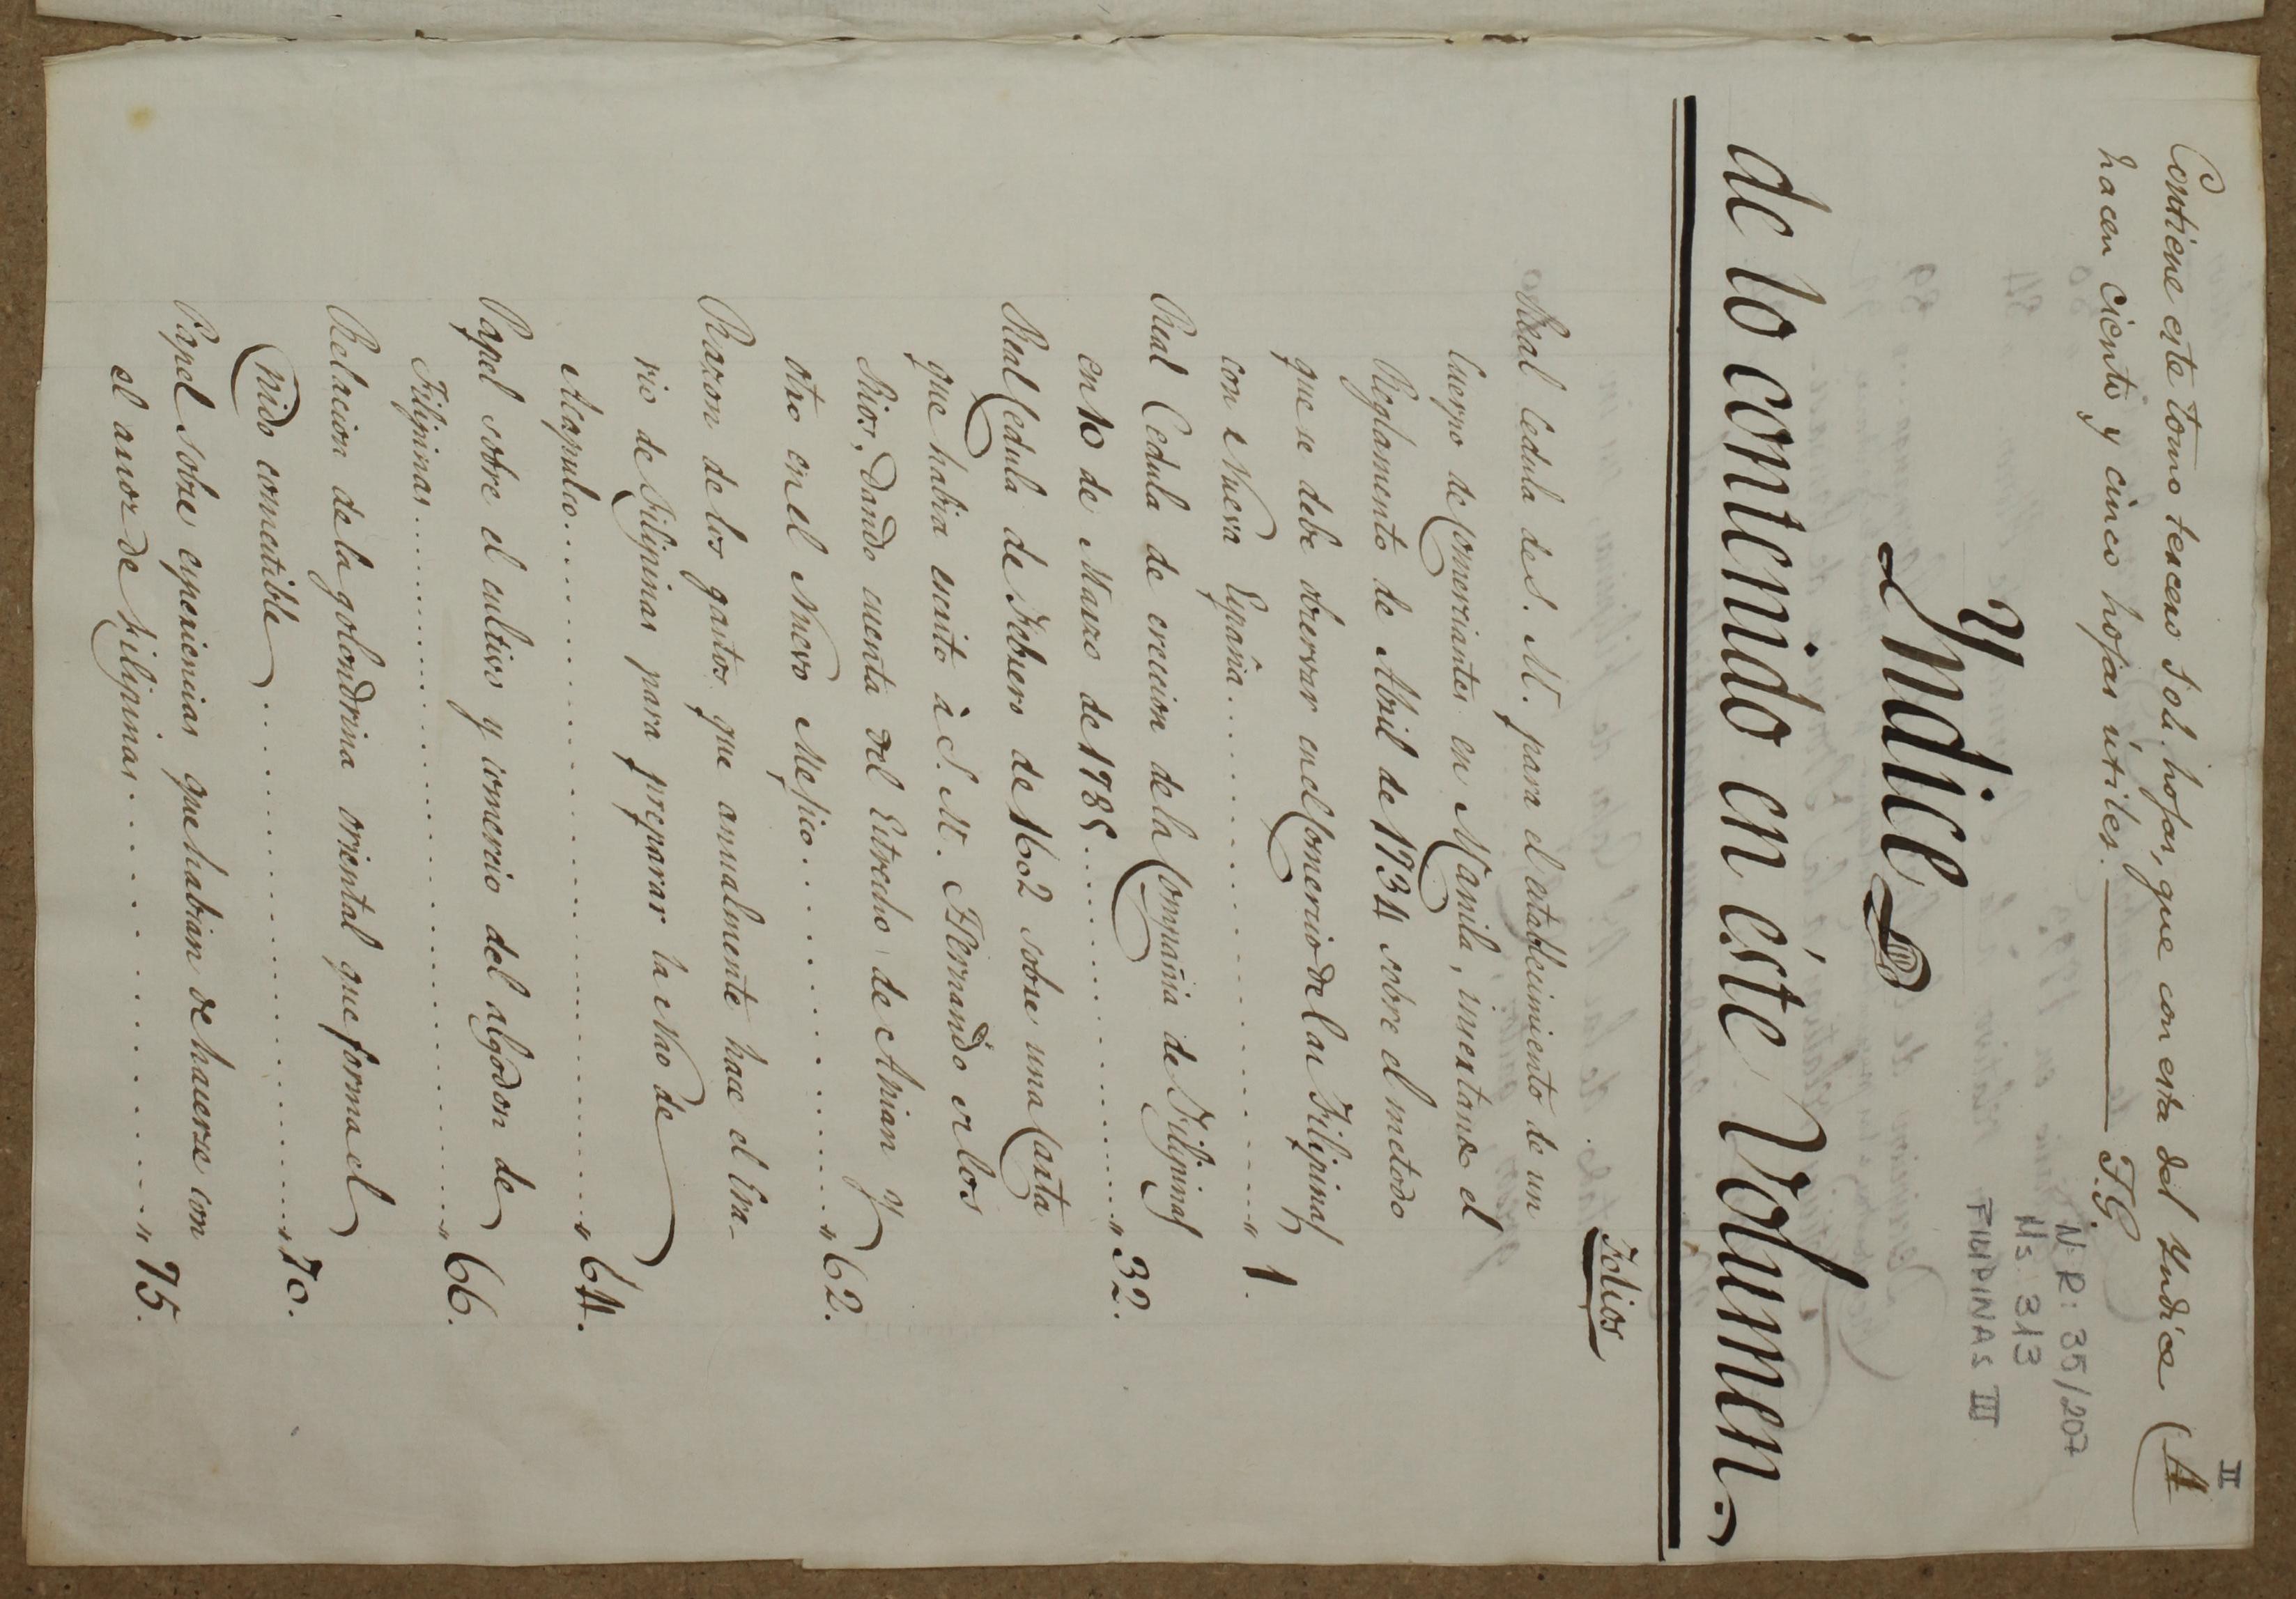 II
Contiene este tomo tercero 104. hojas, que con esta del Yndice (A
hacen ciento y cinco hojas útiles. ——— F.G.
N.R: 35/207
Ms 313
FILIPINAS III
Yndice
de lo contenido en éste Volumen.
Folios
Real Cedula de S. M. para el establecimiento de un
Cuerpo de Comerciantes en Manila, insertando el
Reglamento de Abril de 1734 sobre el metodo
que se debe observar en el Comercio de las Filipinas
con Nueva España . . . . . . . . . . . . . . . . . . „ 1.
Real Cedula de ereccion de la Compañia de Filipinas
en 10 de Marzo de 1785 . . . . . . . . . . . . . . . . . . „ 32.
Real Cedula de Febrero de 1602 sobre una Carta
que habia escrito à S. M. Hernando de los
Rios, dando cuenta del Estrecho de Anian y
otro en el Nuevo Mejico . . . . . . . . . . . . . . . „ 62.
Razon de los gastos que anualmente hace el Era-
rio de Filipinas para preparar la Nao de
Acapulco . . . . . . . . . . . . . . . . . . . . . „ 64.
Papel sobre el cultivo y comercio del algodon de
Filipinas . . . . . . . . . . . . . . . . . . . . . . . „ 66.
Relacion de la golondrina oriental que forma el
Nido comestible . . . . . . . . . . . . . . . . . . „ 70.
Papel sobre experiencias que habian de hacerse con
el añor de Filipinas . . . . . . . . . . . . . . . „ 75.